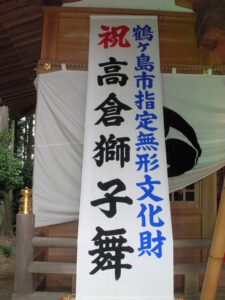 鶴ヶ島市指定無形文化財
祝高倉獅子舞